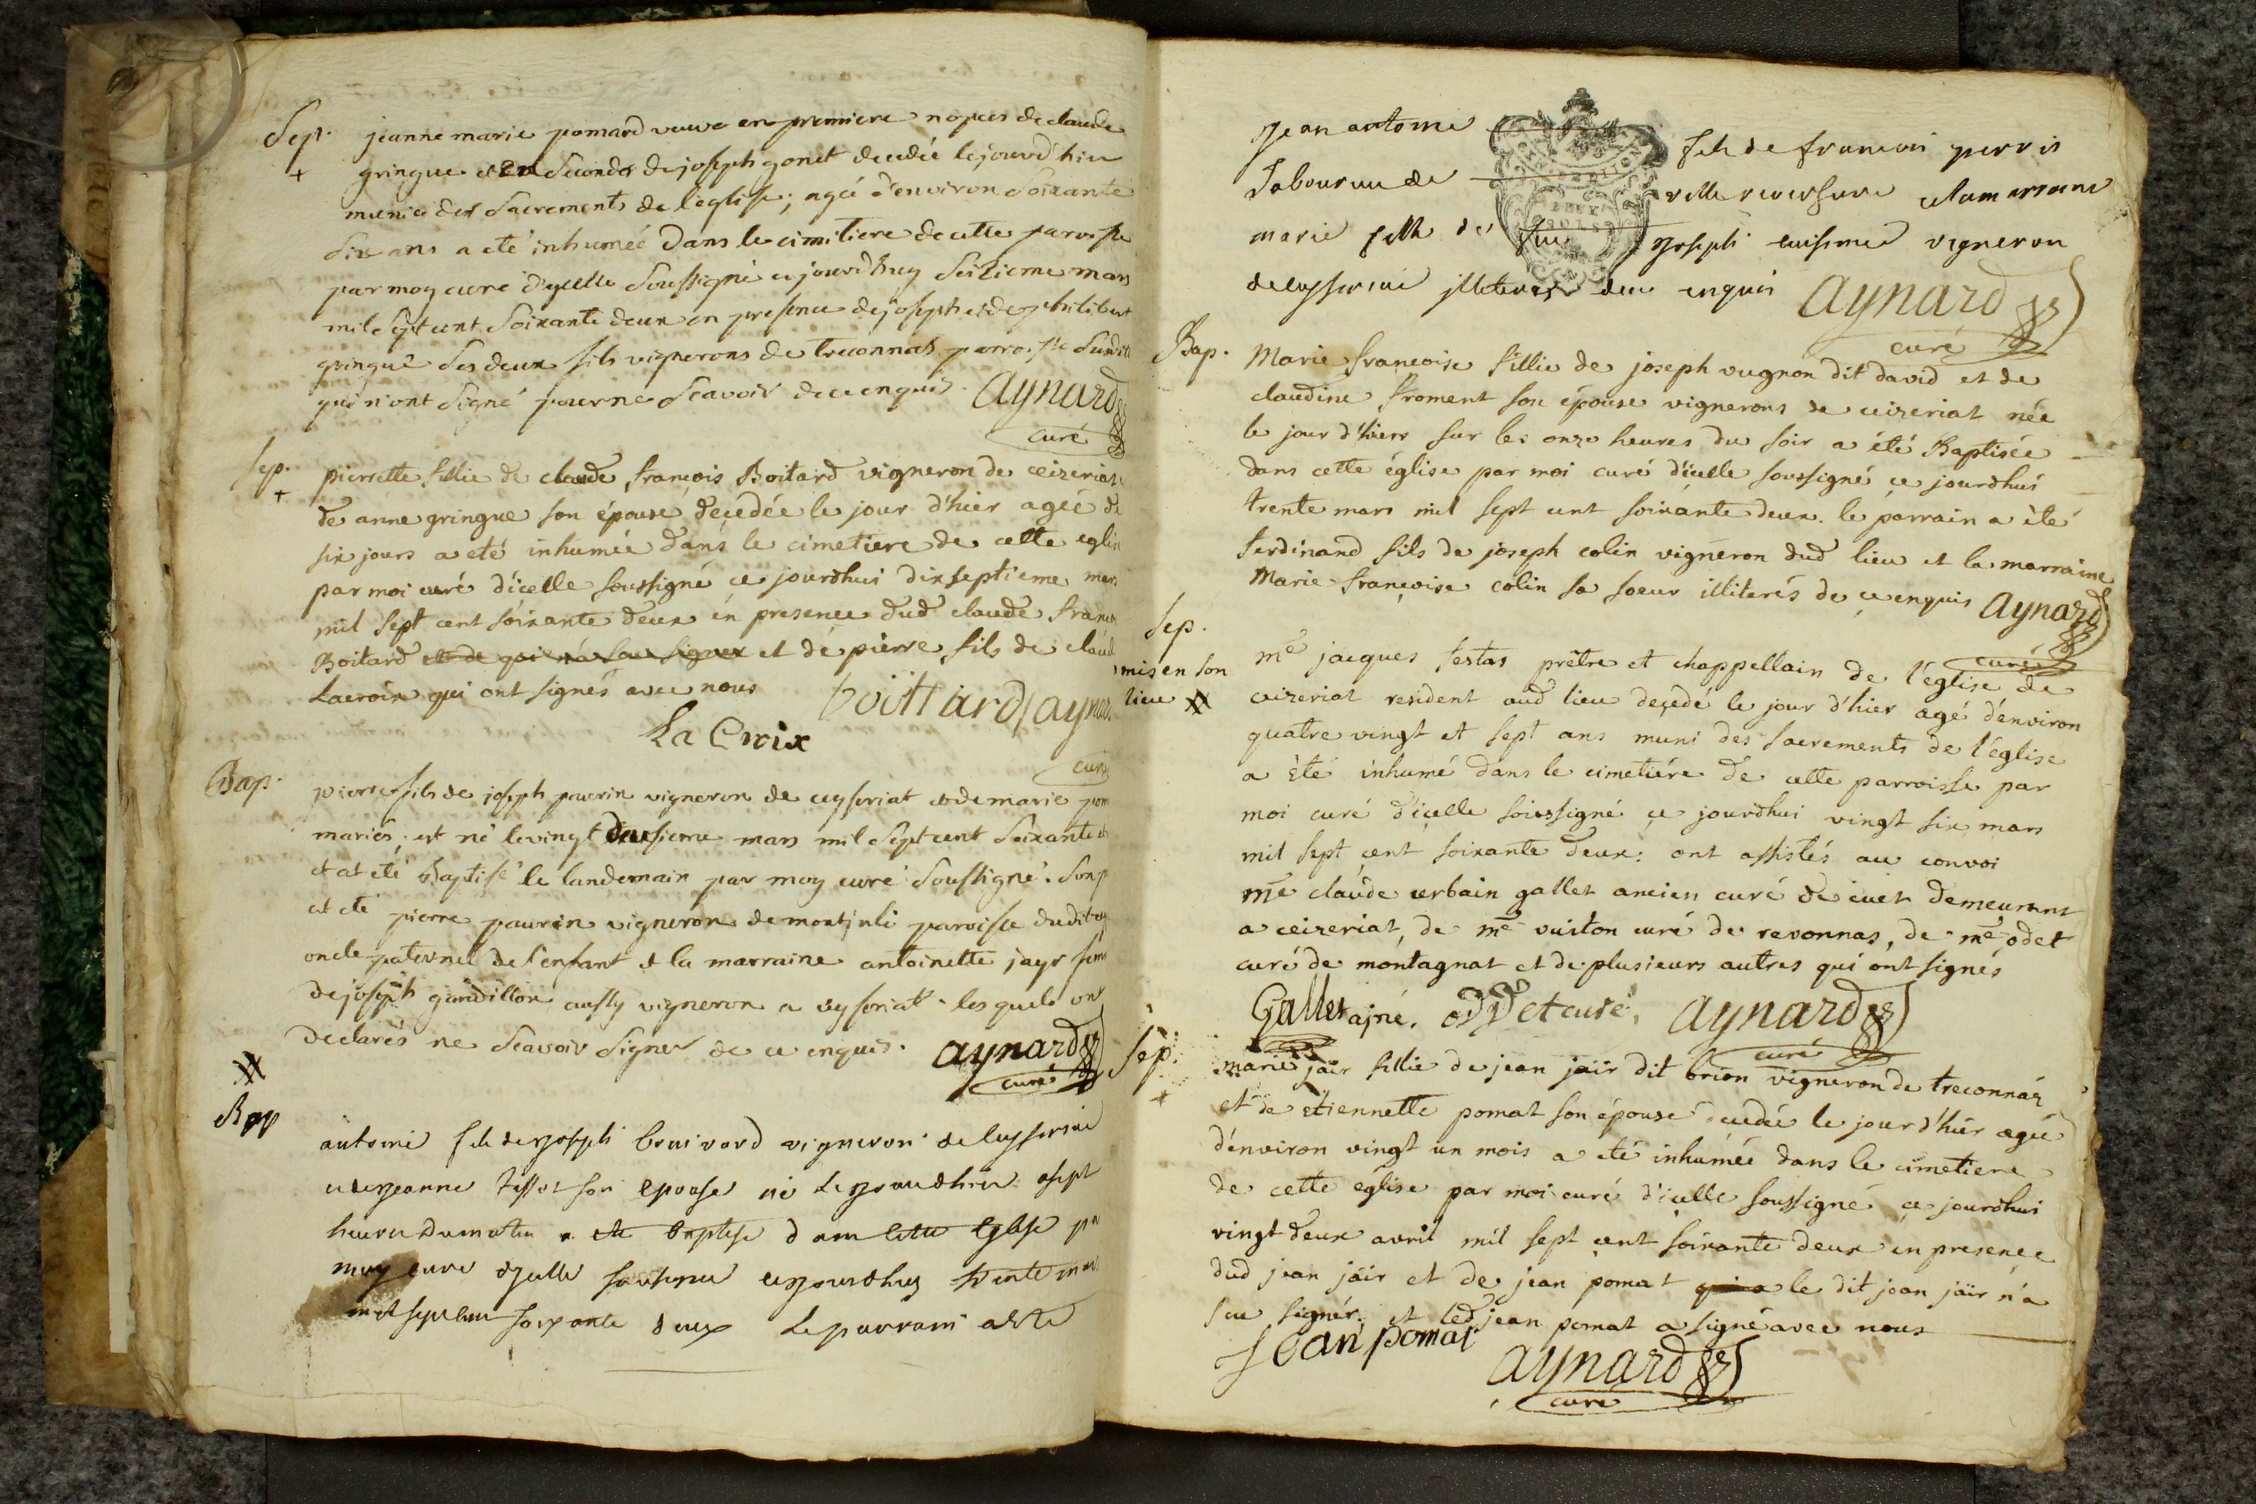 Sep. jeanne marie pomard veuve en premiere nopces de claude
+ gringue et en secondes de joseph gonet decedée le jourd'hier
munie des sacrements de l'eglise, agée d'environ soixante
dix ans a eté inhumée dans le cimitiere de cette paroisse
par moy curé d'ycelle soussigné ce jourd'huy seizieme mars
mil sept cent soixante deux en presence de joseph et de philibert
gringue ses deux fils vignerons de treconnas parroisse dudit
qui n'ont signé pour ne scavoir de ce enquis. aynard
curé
sep. pierrette fillie de claude françois Boitard vigneron de ceizeriat
+ de anne gringue son épouse decédée le jour d'hier agée de
six jours a eté inhumée dans le cimetiere de cette eglise
par moi curé d'icelle soussigné ce jourdhui dixseptieme mars
mil sept cent soixante deux en presence dud claude franco
Boitard et de qui n'a seu signer et de pierre fils de claud
Lacroix qui ont signés avec nous
boittard aynar
La Croix
curé
Bap. pierre fils de joseph paurin vigneron de ceyseriat et de marie pom
mariés, est né le vingt deusieme mars mil sept cent soixante et
et at eté Baptisé le landemain par moy curé soussigné. son p
at eté pierre paurin vigneron de montjuli paroisse dudit cey
oncle paternel de l'enfant et la marraine antoinette jayr feme
de joseph gandillon aussy vigneron a ceyseriat. les quels ont
declarés ne scavoir signer de ce enquis. aynard
curé
Bap antoine fils de joseph bouivard vigneron de ceyseriat
et de jeanne tissot son epouse né le jourdhier a sept
heures du matin a ete baptisé dans cette eglise par
moy curé d'jcelle soussigné cejourdhuy trente mars
mil sept cent soixante deux le parrain a este
jean antoine fils de francois perris
laboureur de ville reversure et la marraine
marie fille de feu joseph cuisinied vigneron
de ceyseriat jlleteres de ce enquis aynard
curé
Bap. Marie françoise fillie de joseph vugnon dit david et de
claudine froment son épouse vignerons de ceizeriat née
le jour d'hierr sur les onze heures du soir a été Baptisée
dans cette église par moi curé d'icelle soussigné ce jourdhui
trente mars mil sept cent soixante deux. le parrain a été
ferdinand fils de joseph colin vigneron dud lieu et la marraine
Marie françoise colin sa soeur illiterés de ce enquis aynard
curé
Sep. me jacques festas prêtre et chappellain de l'église de
mis en son ceizeriat resident aud lieu decedé le jour d'hier agé d'environ
lieu quatre vingt et sept ans muni des sacrements de l'église
a été inhumé dans le cimetiére de cette parroisse par
moi curé d'icelle soussigné ce jourdhui vingt six mars
mil sept cent soixante deux: ont assistés au convoi
me claude urbain gallet ancien curé de cuet demeurant
a ceizeriat, de me vuiton curé de revonnas, de me odet
curé de montagnat et de plusieurs autres qui ont signés
Gallet ajné. odet curé. aynard
curé
Sep. marie jaïr fillie de jean jaïr dit brion vigneron de treconnaz
+ et de etiennette pomat son épouse decedée le jour d'hier agée
d'environ vingt un mois a eté inhumée dans le cimetiere
de cette église par moi curé d'icelle soussigné ce jourdhui
vingt deux avril mil sept cent soixante deux en presence
dud jean jaïr et de jean pomat qui a le dit jean jaïr n'a
seu signer, et led jean pomat a signé avec nous
jean pomat
aynard
curé